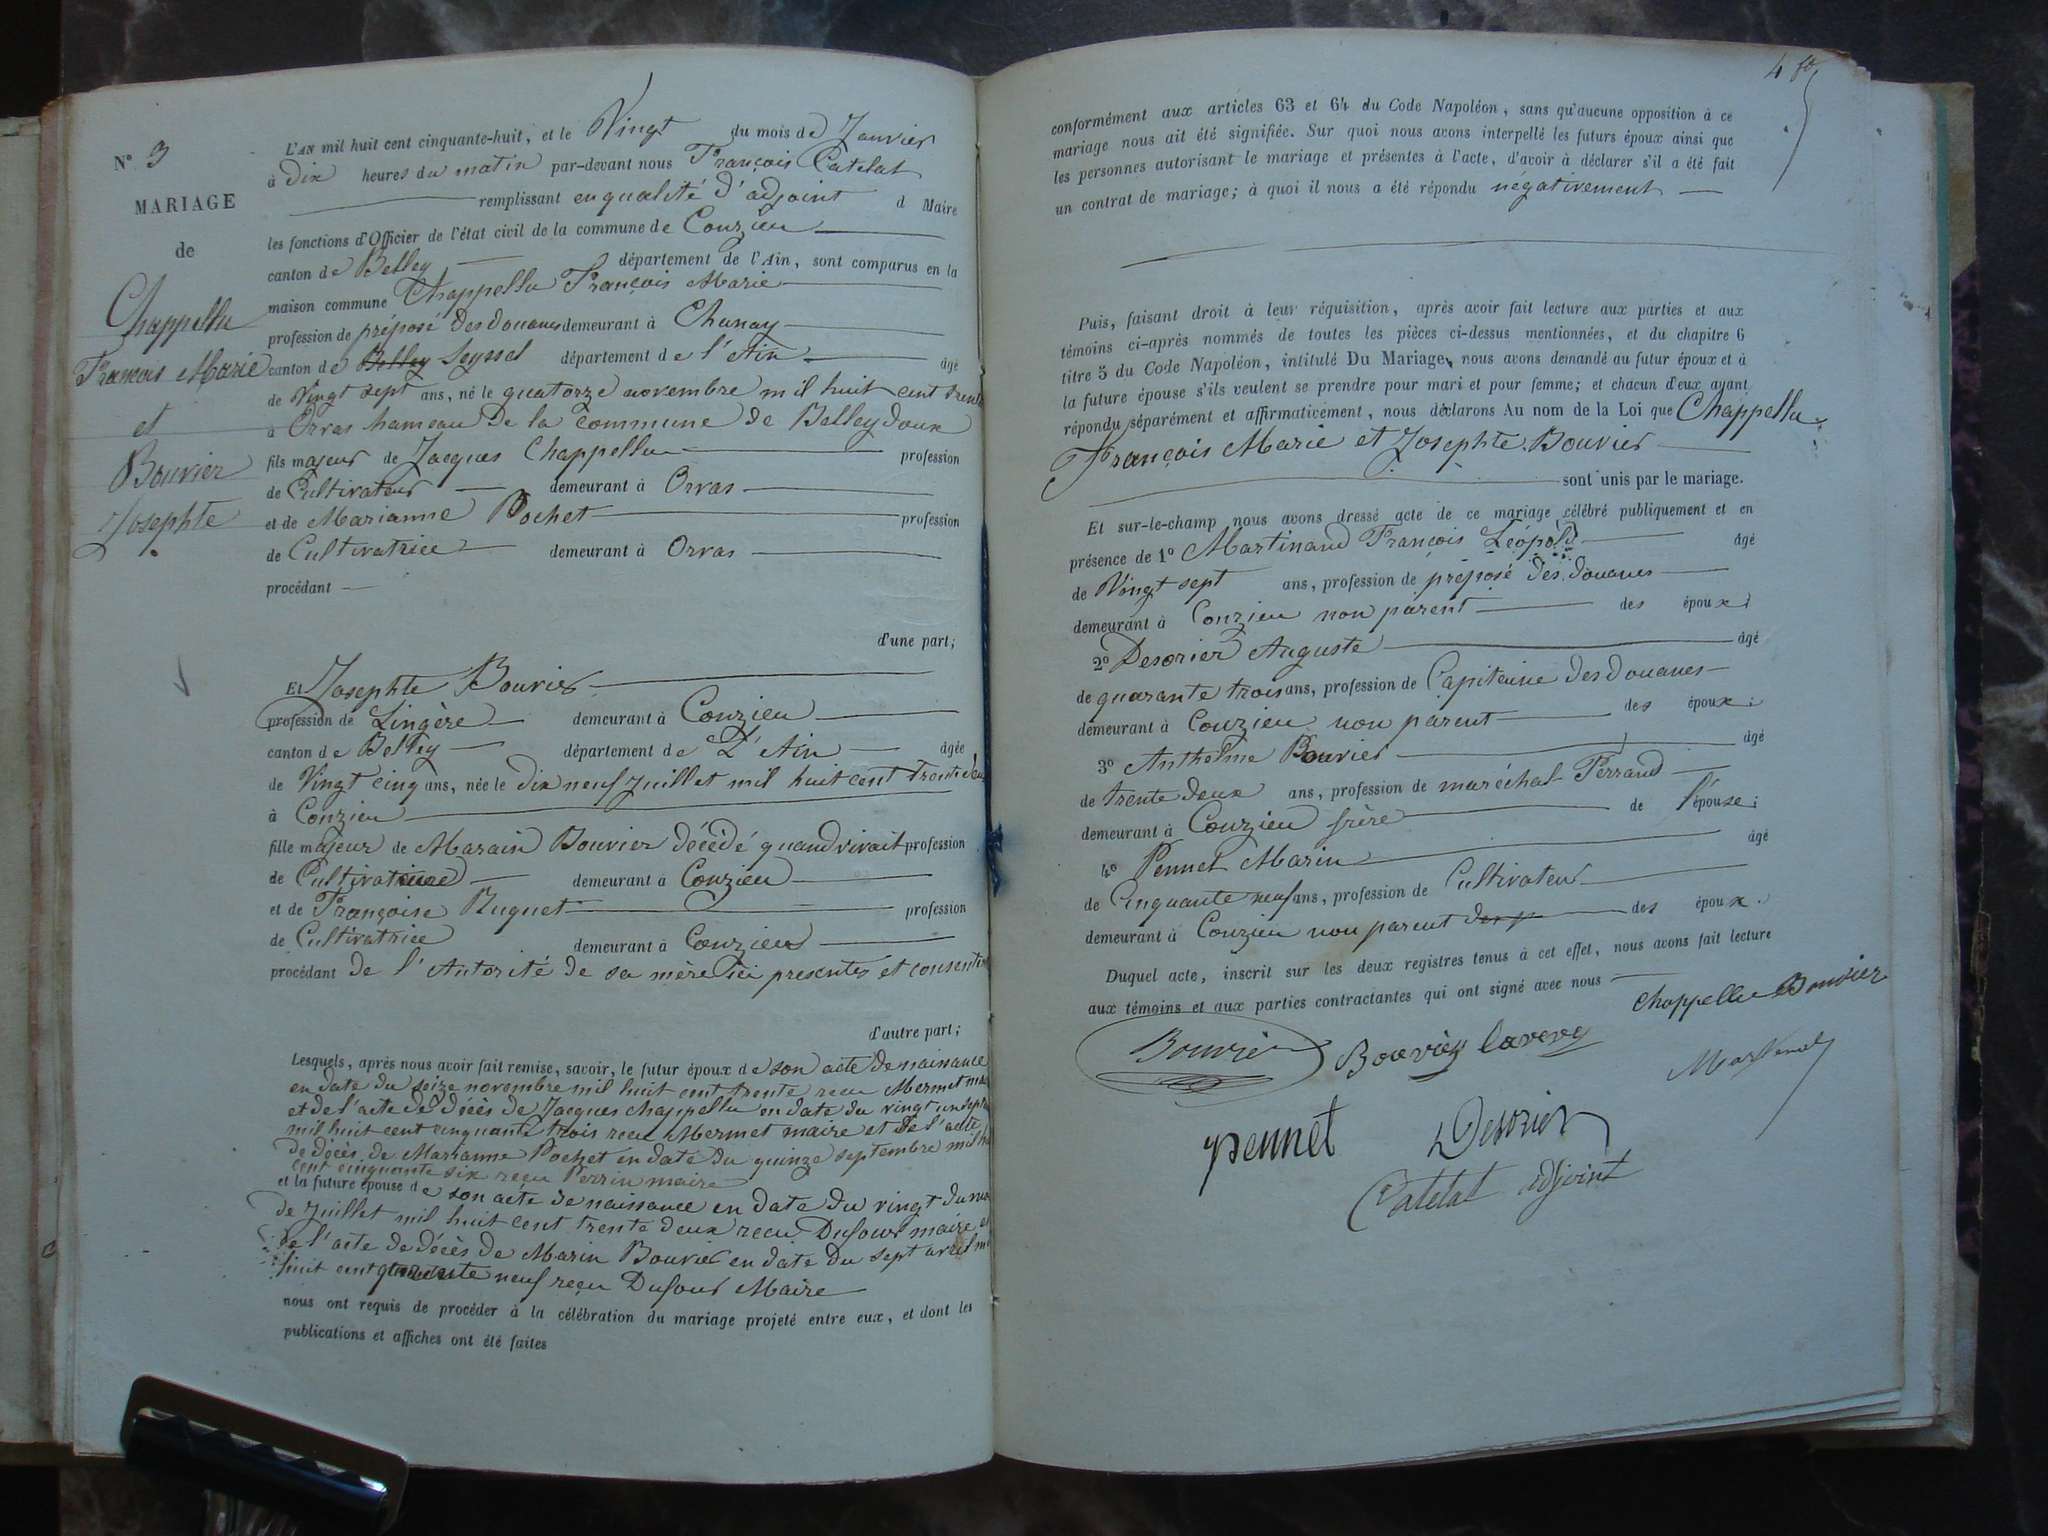 N° 3
MARIAGE
de
Chappellu
François Marie
et
Bouvier
Josephte
L'AN mil huit cent cinquante-huit, et le Vingt du mois de Janvier
à Dix heures du matin par-devant nous François Catelat
remplissant en qualité d'adjoint d Maire
les fonctions d'Officier de l'état civil de la commune de Conzieu
canton de Belley département de l'Ain, sont comparus en la
maison commune Chappellu François Marie
profession de préposé Des douanes demeurant à Chanay
canton de Belley Seyssel département de l'Ain âgé
de Vingt sept ans, né le quatorze novembre mil huit cent trente
à Orvas hameau De la Commune de Belleydoux
fils majeur de Jacques Chappellu profession
de Cultivateur demeurant à Orvas
et de Marianne Pochet profession
de Cultivatrice demeurant à Orvas
procédant
d'une part;
Et Josephte Bouvier
profession de Lingère demeurant à Conzieu
canton de Belley département de L'Ain âgée
de Vingt cinq ans, née le Dix neuf Juillet mil huit cent trente deux
à Conzieu
fille majeur de Marain Bouvier Décédé quand vivait profession
de demeurant à Conzieu
et de Françoise Ruguet profession
de Cultivatrice demeurant à Conzieu
procédant de l'Autorité de sa mère ici presente et
d'autre part;
Lesquels, après nous avoir fait remise, savoir, le futur époux de son acte De naissance
en date du seize novembre mil huit cent trente recu Mermet
et de l'acte de Décès de Jacques Chappellu en date du vingt un
mil huit cent cinquante trois recu Mermet maire et de l'acte
De Décès de Marianne Pochet en date du quinze septembre mil
cent cinquante six recu Perrin maire
et la future épouse de son acte de naissance en date du vingt du
de Juillet mil huit cent trente deux recu Dufour maire et
de l'acte de décès de Marin Bouvier en date du sept avril
huit cent quarante neuf reçu Dufour Maire
nous ont requis de procéder à la célébration du mariage projeté entre eux, et dont les
publications et affiches ont été faites
4
conformément aux articles 63 et 64 du Code Napoléon, sans qu'aucune opposition à ce
mariage nous ait été signifiée. Sur quoi nous avons interpellé les futurs époux ainsi que
les personnes autorisant le mariage et présentes à l'acte, d'avoir à déclarer s'il a été fait
un contrat de mariage; à quoi il nous a été répondu négativement
Puis, faisant droit à leur réquisition, après avoir fait lecture aux parties et aux
témoins ci-après nommés de toutes les pièces ci-dessus mentionnées, et du chapitre 6
titre 5 du Code Napoléon, intitulé Du Mariage, nous avons demandé au futur époux et à
la future épouse s'ils veulent se prendre pour mari et pour femme; et chacun d'eux ayant
répondu séparément et affirmativement, nous déclarons Au nom de la Loi que Chappellu
François Marie et Josephte Bouvier
sont unis par le mariage.
Et sur-le-champ nous avons dressé acte de ce mariage célébré publiquement et en
présence de 1° Martinand François Léopold âgé
de Vingt sept ans, profession de préposé des douanes
demeurant à Conzieu non parent des époux;
2° Desorier Auguste âgé
de quarante trois ans, profession de Capitaine des Douanes
demeurant à Conzieu non parent des époux;
3° Anthelme Bouvier âgé
de trente deux ans, profession de maréchal Ferrand
demeurant à Conzieu frère de l'épouse;
4° Pennet Marin âgé
de Cinquante neuf ans, profession de Cultivateur
demeurant à Conzieu non parent des époux.
Duquel acte, inscrit sur les deux registres tenus à cet effet, nous avons fait lecture
aux témoins et aux parties contractantes qui ont signé avec nous
Chappellu Bouvier
Bouvier Bouvier
pennet Desorier
Catelat adjoint